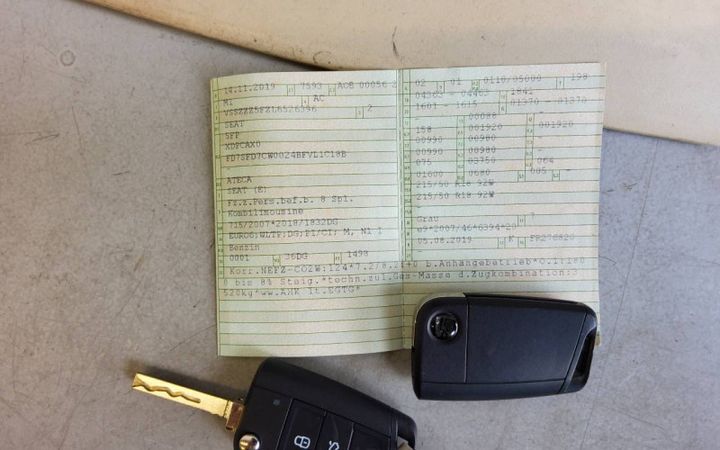 14.11.2019 7593 AOB 00056 2
M1 AC
VSSZZZ5FZL6526396 2
SEAT
5FP
XDPCAX0
FD7SFD7CW0024BFVL1C18B
-
ATECA
SEAT (E)
Fz.z.Pers.bef.b. 8 Spl.
Kombilimousine
715/2007*2018/1832DG
EURO6;WLTP;DG;PI/CI; M, N1 I
Benzin
0001 36DG 1498
02 01 0110/05000 198
04363 - 04363 1841
1601 - 1615 01370 - 01370
00088 -
158 001920 001920
00990 00980
00990 00980
075 03750 064
01600 0680 005 -
215/50 R18 92W
215/50 R18 92W
-
-
Grau 7
e9*2007/46*6394*20
05.08.2019 K FP276820
Korr.NEFZ-CO2W:124*7.2/8.2:+0 b.Anhängebetrieb*O.1:180
0 bis 8% Steig.*techn.zul.Ges-Masse d.Zugkombination:3
520kg*ww.AHK lt.EGTG*